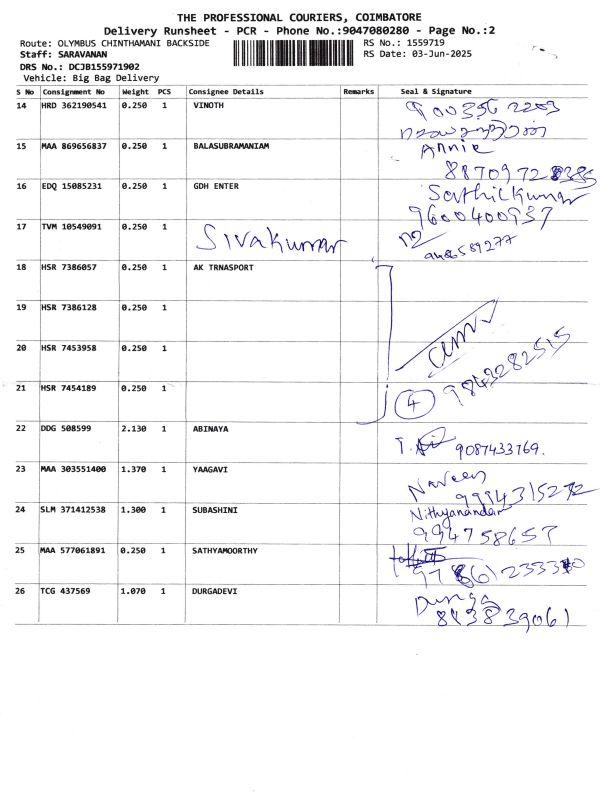 THE PROFESSIONAL COURIERS, COIMBATORE
Delivery Runsheet - PCR - Phone No.:9047080280 - Page No.:2
Route: OLYMBUS CHINTHAMANI BACKSIDE RS No.: 1559719
Staff: SARAVANAN RS Date: 03-Jun-2025
DRS No.: DCJB155971902
Vehicle: Big Bag Delivery
S No Consignment No Weight PCS Consignee Details Remarks Seal & Signature
14 HRD 362190541 0.250 1 VINOTH
15 MAA 869656837 0.250 1 BALASUBRAMANIAM Annie
16 EDQ 15085231 0.250 1 GDH ENTER Sathickumar
9600400937
17 TVM 10549091 0.250 1 Sivakumar
18 HSR 7386057 0.250 1 AK TRNASPORT
19 HSR 7386128 0.250 1
20 HSR 7453958 0.250 1
9843282515
21 HSR 7454189 0.250 1 4
22 DDG 508599 2.130 1 ABINAYA 9087433769.
23 MAA 303551400 1.370 1 YAAGAVI Naveen
9994315272
24 SLM 371412538 1.300 1 SUBASHINI Nithyanandar
994758657
25 MAA 577061891 0.250 1 SATHYAMOORTHY
26 TCG 437569 1.070 1 DURGADEVI Durga
843839061